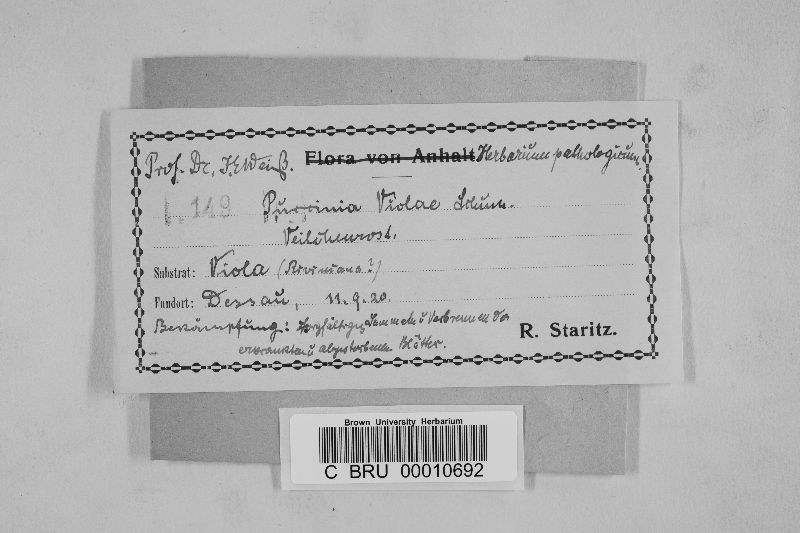 Prof. Dr. J. E. Weiß. Flora von Anhalt Herbarium pathologicum.
149 Puccinia Violae Schum.
Veilchenrost.
Substrat: Viola (Riviniana?)
Fundort: Dessau, 11. 9. 20.
Bekämpfung: Sorgfältiges Sammeln u Verbrennen der
erkrankten u abgestorbenen Blätter.
R. Staritz.
Brown University Herbarium
C BRU 00010692